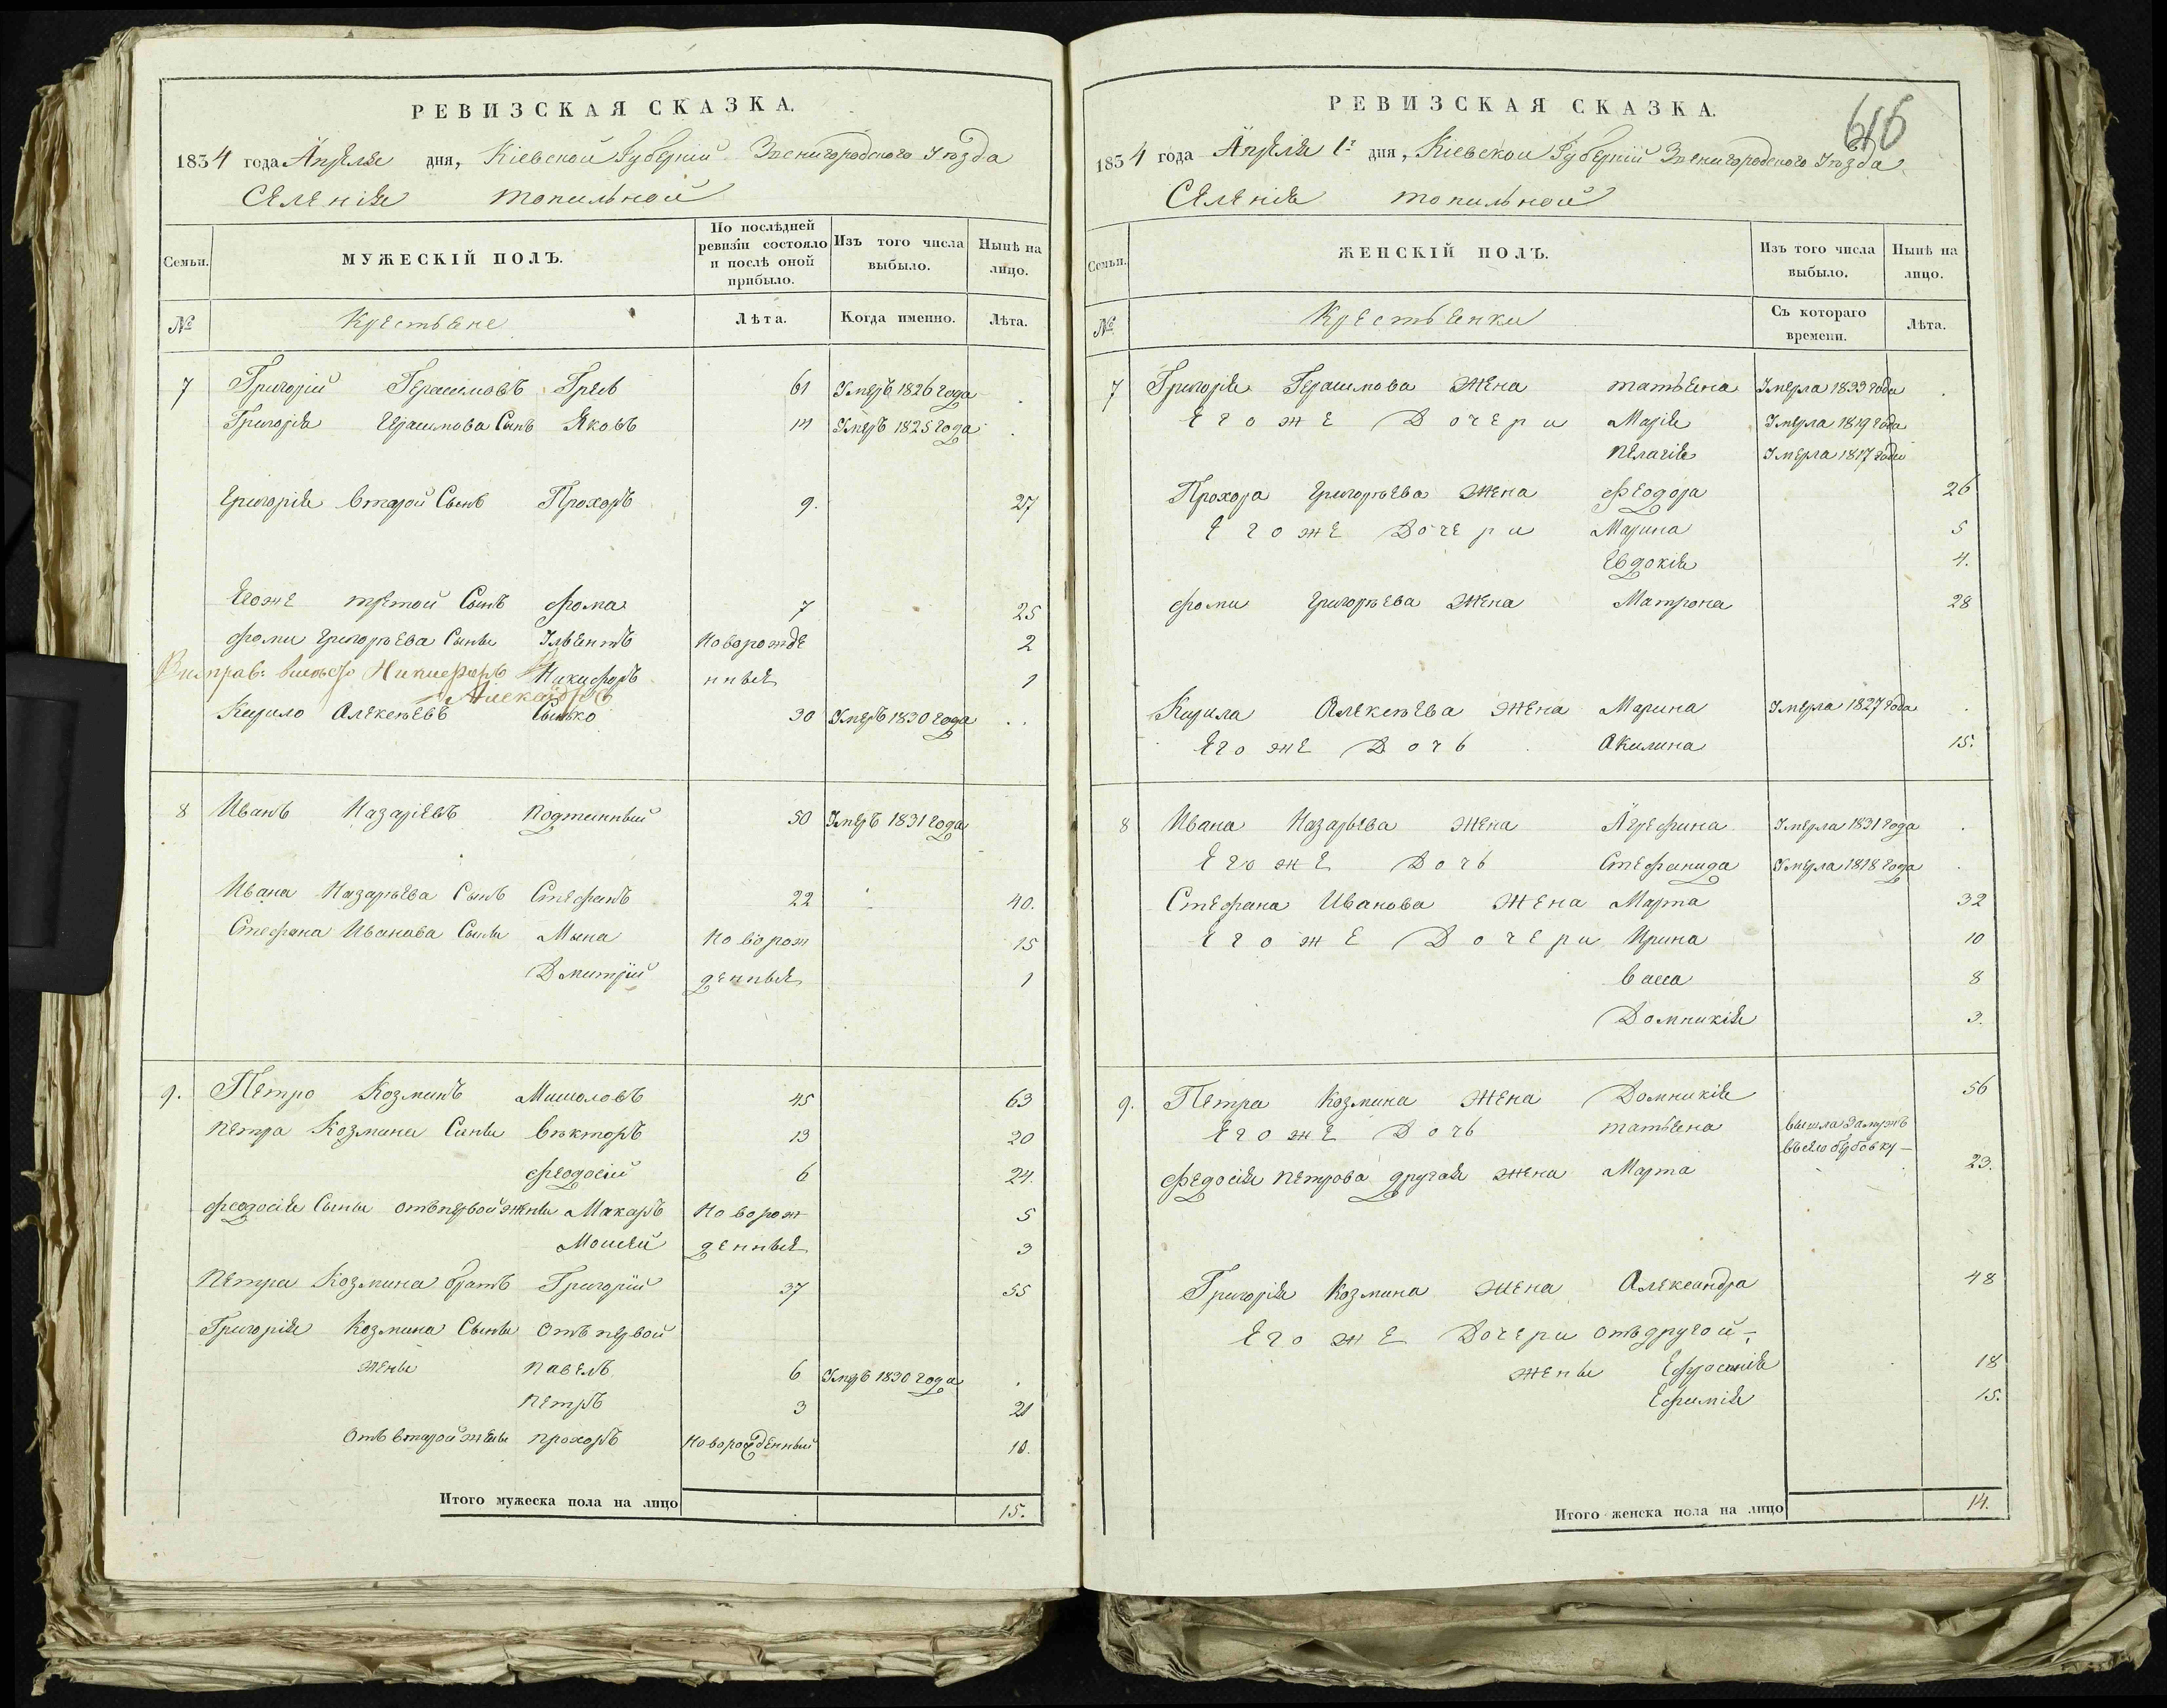 РЕВИЗСКАЯ СКАЗКА.
1834 года Апреля дня, Кіевской Губерніи Звенигородского Уѣзда
Селенія Топильной
Семьи.
МУЖЕСКІЙ ПОЛЪ.
По послѣдней ревизіи состояло и послѣ оной прибыло.
Изъ того числа выбыло.
Нынѣ на лицо.
№
Крестьяне
Лѣта.
Когда именно.
Лѣта.
7 Григорій Герасимовъ 61 Умеръ 1826 года
Григорія Герасимова Сынъ Яковъ Умеръ 1825 года
Григорія второй Сынъ Прохоръ 9. 27
Егоже третой Сынъ Фома 7 25
Фомы Григорьева Сыны новорожде 2
Никифоръ нные 1
Кирило Алексеевъ Сынько 30 Умеръ 1830 года
8 Иванъ Назаріевъ 50 Умеръ 1831 года
Ивана Назарьева Сынъ Стефанъ 22 40.
Стефана Иванова Сыны Мына новорож 15
Дмитрій денные 1
9. Петро Козминъ Мишоловъ 45 63
Петра Козмина Сыны Вѣкторъ 13 20
Феодосій 6 24.
Феодосія Сыны отъ первой жены Макаръ новорож 5
Мойсей денные 3
Петра Козмина братъ Григорій 37 55
Григорія Козмина Сыны отъ первой
жены Павелъ 6 Умръ 1830 года
Петръ 3 21
отъ второй жены Прохоръ новорожденный 10.
Итого мужеска пола на лицо 15.
РЕВИЗСКАЯ СКАЗКА.
616
1834 года Апреля 1г дня, Кіевской Губерніи Звенигородского Уѣзда
Селенія Топильной
Семьи.
ЖЕНСКІЙ ПОЛЪ.
Изъ того числа выбыло.
Нынѣ на лицо.
№
Крестьянки
Съ котораго времени.
Лѣта.
7 Григорія Герасимова жена Татьяна Умерла 1833 года
Егоже Дочери Марія Умерла 1819 года
Пелагія Умерла 1817 года
Прохора Григорьева жена Феодора 26
Егоже Дочери Марина 5
Евдокія 4.
Фомы Григорьева жена Матрона 28
Кирила Алексѣева жена Марина Умерла 1827 года
Егоже Дочь Акилина 15.
8 Ивана Назарьева жена Агрефина Умерла 1831 года
Егоже Дочь Стефанида Умерла 1818 года
Стефана Иванова жена Марта 32
Егоже Дочери Ирина 10
Васса 8
Домникія 3.
9. Петра Козмина жена Домникія 56
Егоже Дочь Татьяна вышла замужъ
въ село бубовку
Федосія Петрова другая жена Марта 23.
Григорія Козмина жена Александра 48
Егоже Дочери отъ другой
жены Ефросинія 18
Ефимія 15.
Итого женска пола на лицо 14.